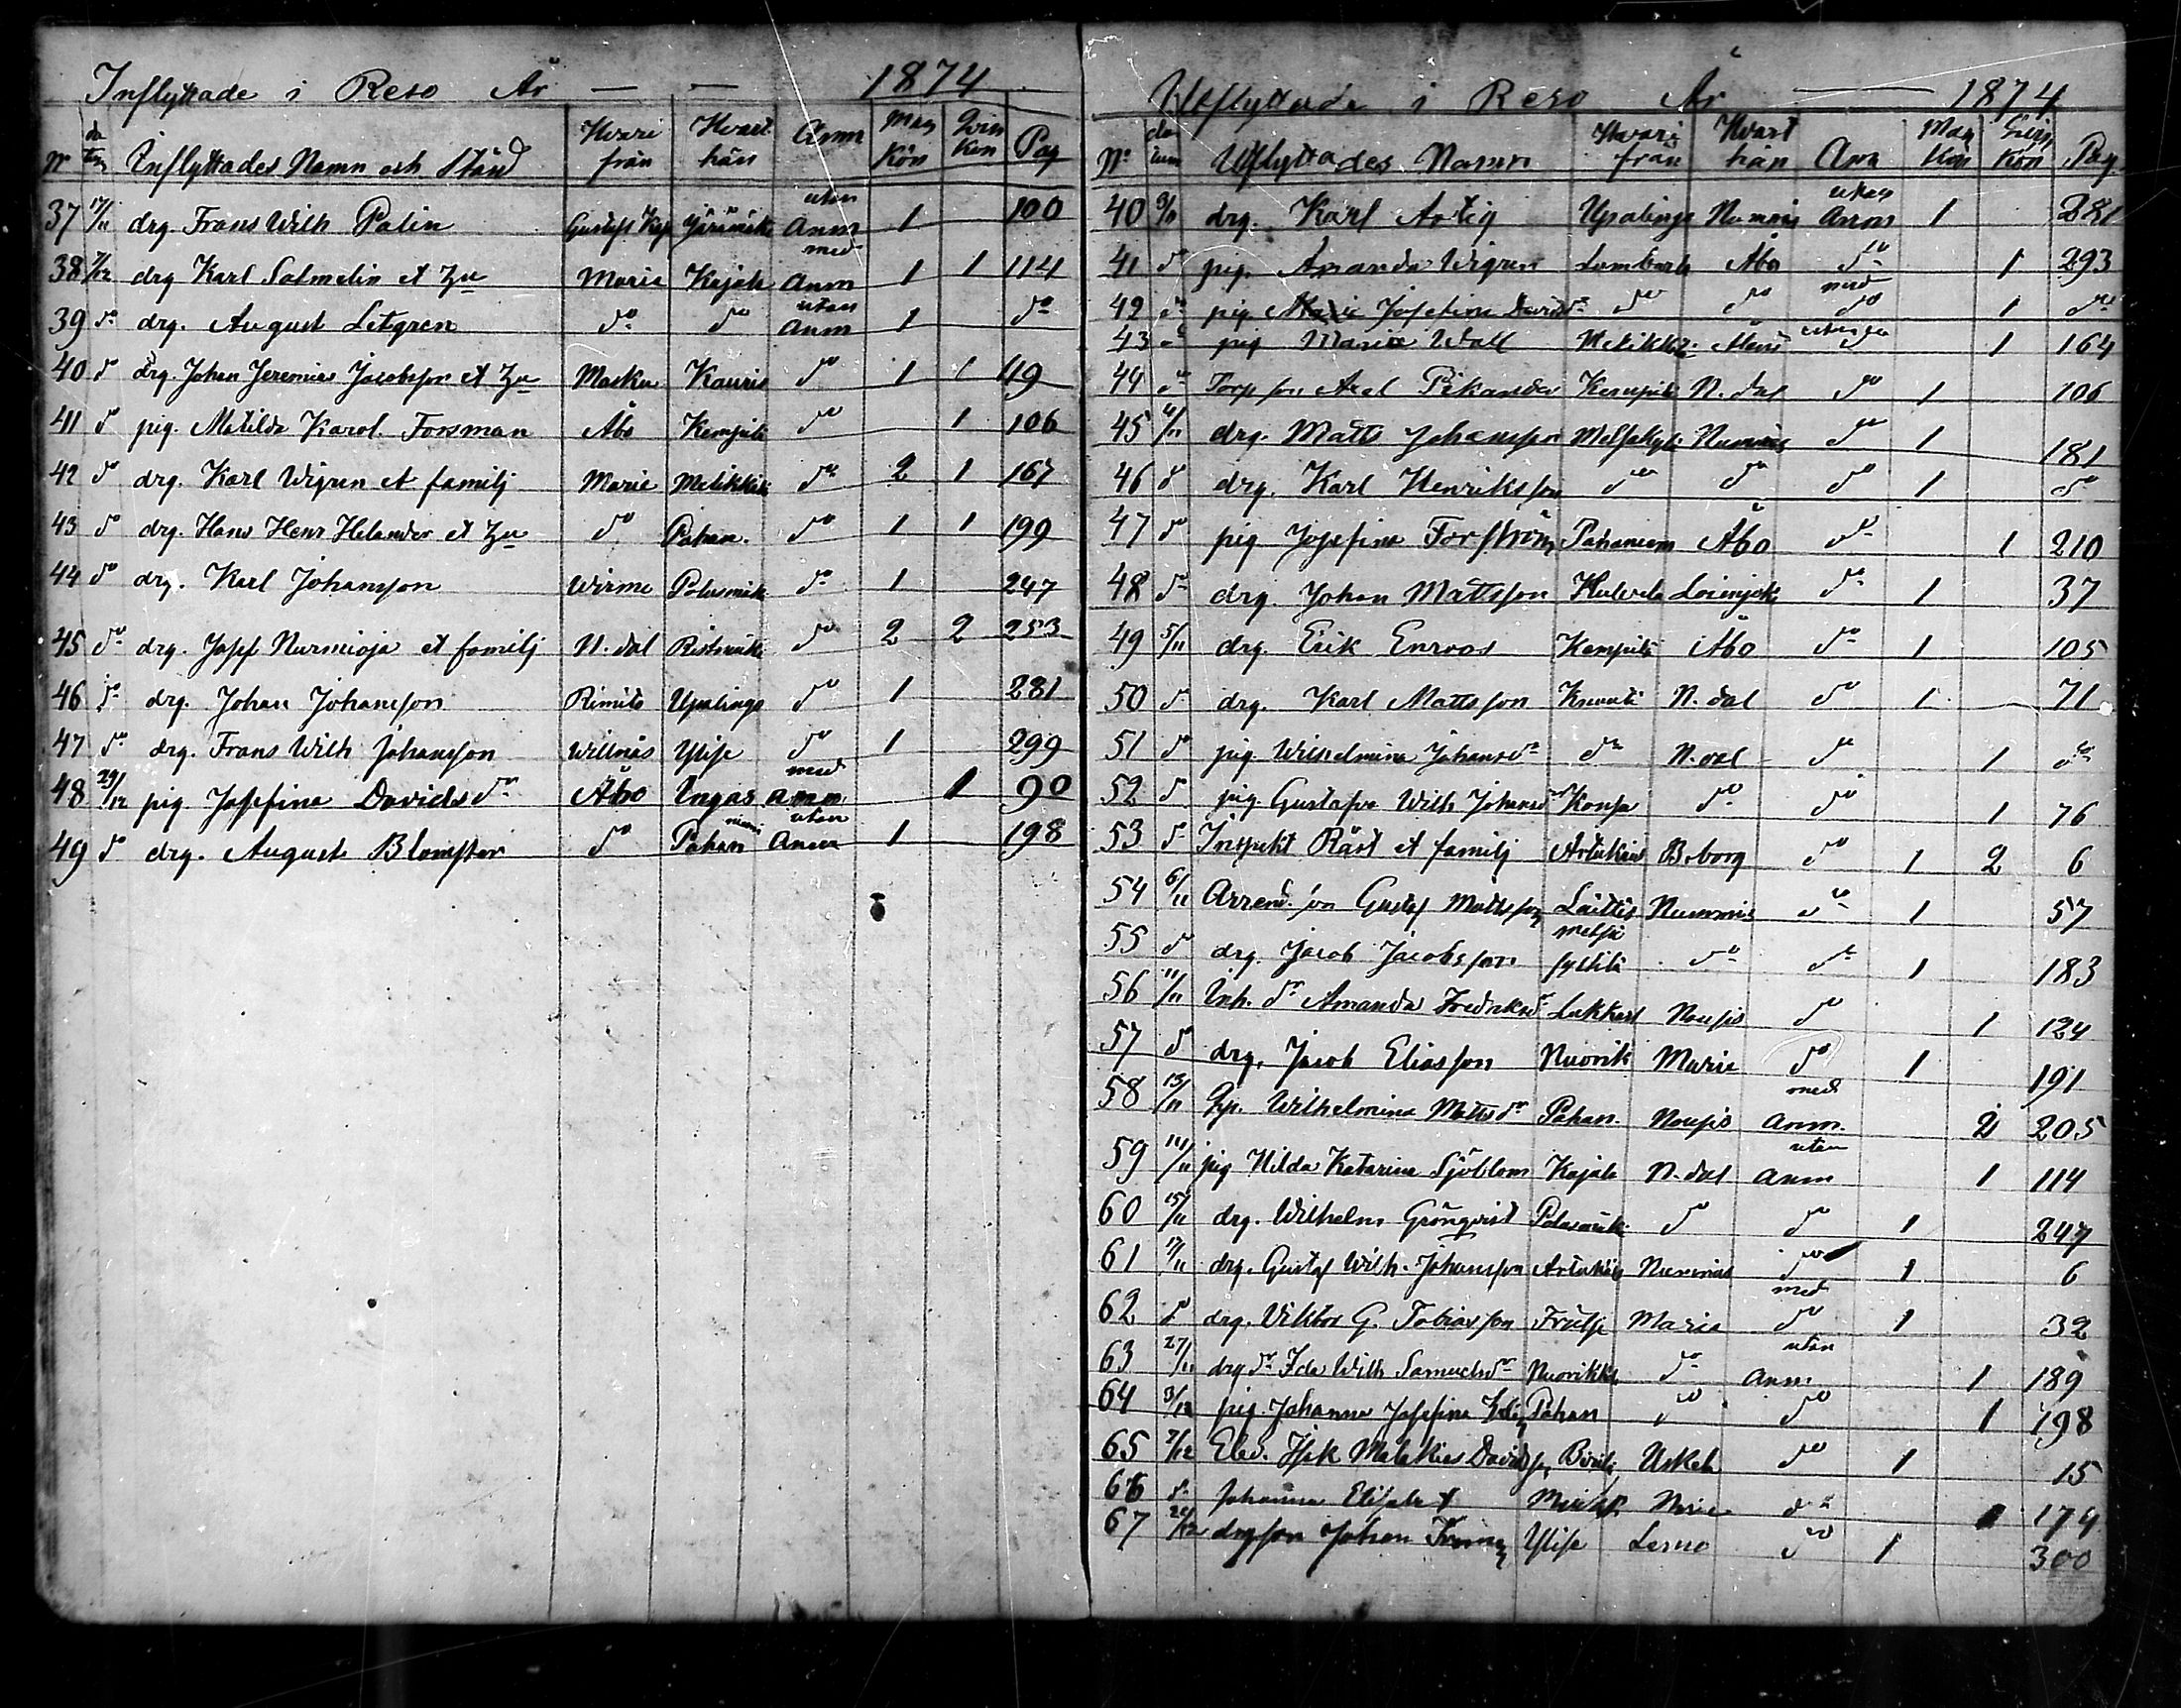 Inflyttade i Reso År — — 1874
No datum Inflyttades Namn och Stånd Hvari från Hvart hän Anm Man Kön Qvin kön Pag
37 17/11 drg. Frans Wilh Palin uten Anm 1 100
38 7/12 drg Karl Salmelin et Marie Kajala med Anm 1 1 114
39 do drg. August Letgren do do utan Anm 1 do
40 do drg. Johan Jeremias Jacobsson et Masku Kauris do 1 1 49
41 do pig. Matilda Karol. Forsman Åbo Kempile do 1 106
42 do drg. Karl Wigren et familj Marie Metikkele do 2 1 167
43 do drg. Hans Henr Helander et do Pahan. do 1 1 199
44 do drg. Karl Johansson Wirmo Polusmäki do 1 247
45 do drg. Josef Nurmioja et familj N. dal Ristimäki do 2 2 253
46 do drg. Johan Johansson Rimito Upalinge do 1 281
47 do drg. Frans Wilh Johansson Willnäs Ylise do 1 299
48 29/12 pig Josefina Davidsdr Åbo Ungas med Anm 1 90
49 do drg. August Blomster do Pahan niemi utan Anm 1 198
Utflyttade i Reso År — 1874
No datum Utflyttades Namn Hvari från Hvart hän Anm Man Kön Qvin Kön Pag
40 drg. Karl Artig Upalinge Nummis utan Anm 1 281
41 do pig. Amanda Wigren Lambarla Åbo do 1 293
42 do pig. Maria Josefina Davidsdr do do med do 1 do
43 do pig Maria Wall Metikko utan do 1 164
44 do Torp son Axel Pikander Kempile N. dal do 1 106
45 4/11 drg. Matts Johansson Melsakyl. Nummis do 1 181
46 do drg. Karl Henriksson do do do 1 do
47 do pig Josefina Forsström Pahaniem Åbo do 1 210
48 do drg. Johan Mattsson Hulvela Loimijoki do 1 37
49 5/11 drg. Erik Enroos Kempile Åbo do 1 105
50 do drg. Karl Mattsson N. dal do 1 71
51 do pig. Wilhelmina Johansdr do N. dal do 1 do
52 do pig. Gustafva Wilh Johansdr Konsa do do 1 76
53 do Inspekt Räst et familj Artukais B.borg do 1 2 6
54 6/11 Arrend. son Gustaf Mattsson Laittis Nummis do 1 57
55 do drg. Jacob Jacobsson do do 1 183
56 11/11 Inh. dr Amanda Fredriksdr Lukkari Nousis do 1 124
57 do drg. Jacob Eliasson Nuorik Marie do 1 191
58 13/11 Wilhelmina Mattsdr Pahan. Nousis med Anm. 2 205
59 14/11 pig Hilda Katarina Sjöblom Kajala N. dal utan Anm 1 114
60 15/11 drg. Wilhelm Grönqvist Polusmäki do do 1 247
61 17/11 drg. Gustaf Wilh. Johansson Artukais Nummis do 1 6
62 do drg. Viktor G. Tobiasson Frälse Marie med do 1 32
63 27/11 drg dr Ida Wilh Samuelsdr Nuorikka do utan Anm 1 189
64 3/12 pig. Johanna Josefina Pahan do do 1 198
65 7/12 Elev. Isak Malakias Davidss. Uskela do 1 15
66 do Johanna Elisabet Marie do 1 174
67 drgson Johan Ylise Lerno do 1 300